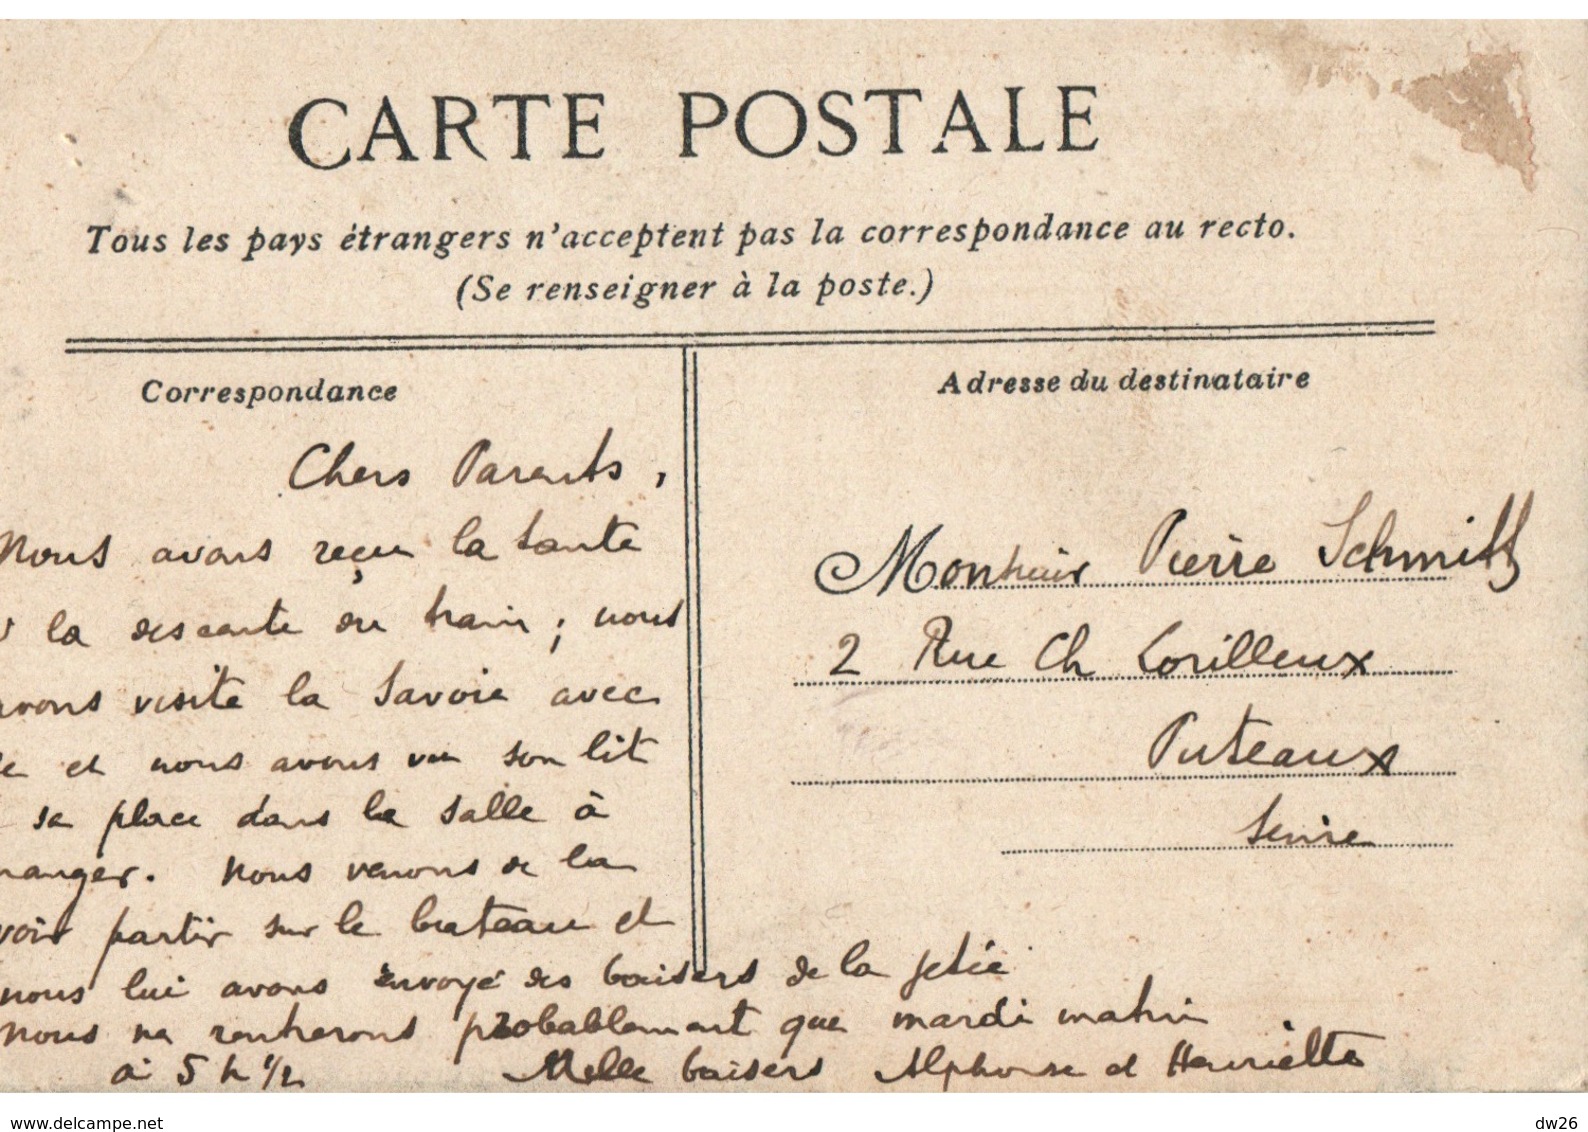 CARTE POSTALE
Tous les pays étrangers n'acceptent pas la correspondance au recto.
(Se renseigner à la poste.)
Correspondance
Chers Parents,
Nous avons reçu la tante
la descente du train ; nous
avons visité la Savoie avec
et nous avons vu son lit
sa place dans la salle à
manger. Nous venons de la
voir partir sur le bateau et
nous lui avons envoyé des baisers de la jetée
nous ne rentrerons probablement que mardi matin
à 5 h 1/2 Mille baisers Alphonse et Henriette
Adresse du destinataire
Monsieur Pierre Schmitt
2 Rue Ch Lorilleux
Puteaux
Seine
www.delcampe.net
dw26